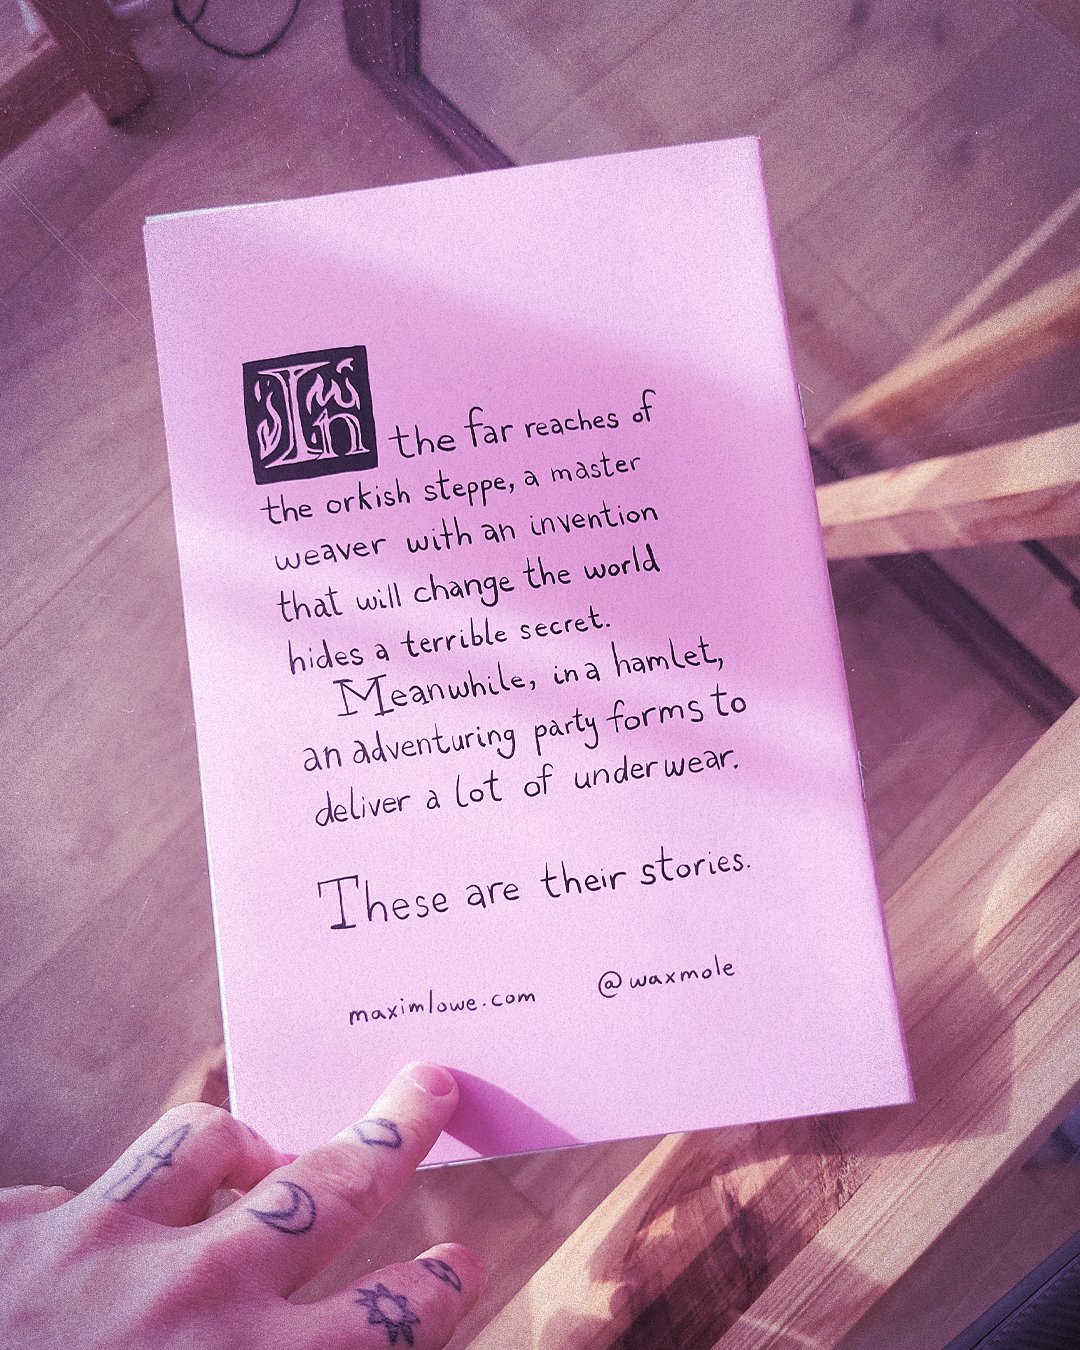 In the far reaches of
the orkish steppe, a master
weaver with an invention
that will change the world
hides a terrible secret.
Meanwhile, in a hamlet,
an adventuring party forms to
deliver a lot of underwear.
These are their stories.
maximlowe.com @waxmole